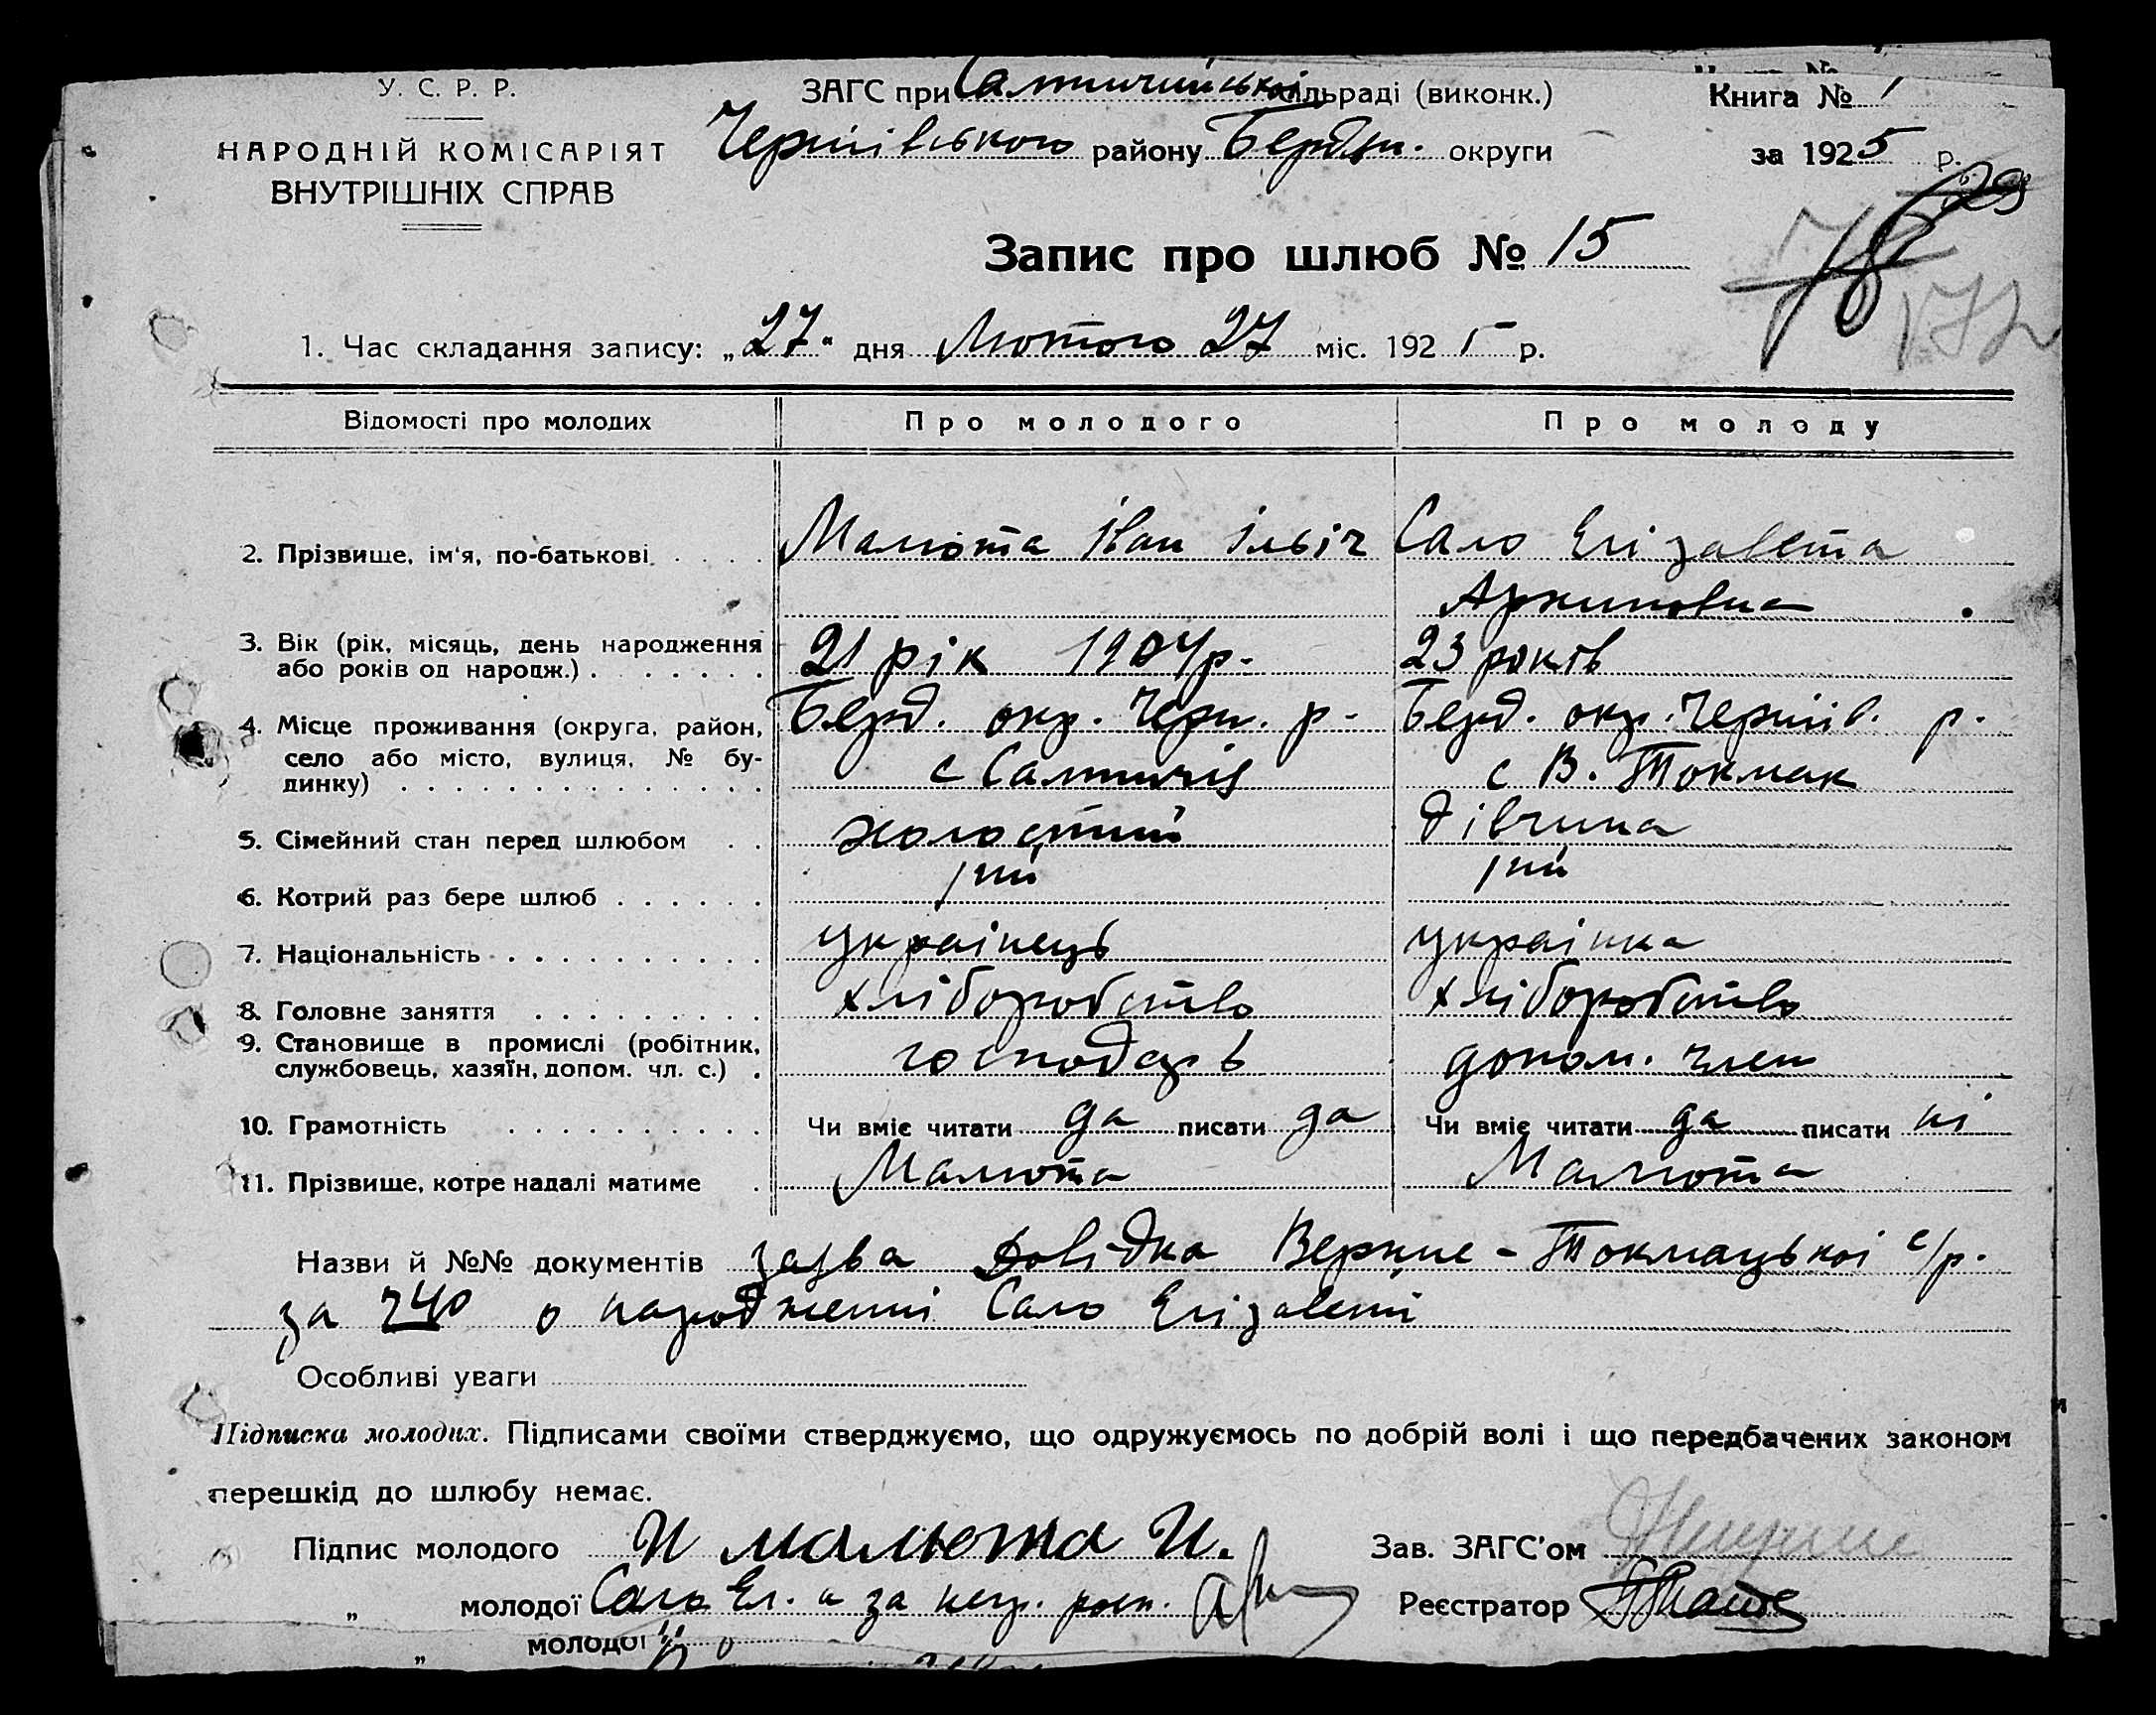 У. С. Р. Р.
НАРОДНІЙ КОМІСАРІЯТ
ВНУТРІШНІХ СПРАВ
ЗАГС при Салтичийської сільраді (виконк.)
Чернівського району Бердян. округи
Книга № 1
за 1925 р.
Запис про шлюб № 15
172
1. Час складання запису: „27“ дня Лютого 27 міс. 1925 р.
Відомості про молодих Про молодого Про молоду
2. Прізвище, ім'я, по-батькові Малюта Іван Ільіч Сало Елізавета
Архиповна
3. Вік (рік, місяць, день народження або років од народж.) 21 рік 1904 р. 23 років
4. Місце проживання (округа, район, Берд. окр. Черн. р. Берд. окр. Чернів. р.
село або місто, вулиця, № будинку) с Салтичія с В. Токмак
5. Сімейний стан перед шлюбом холостий дівчина
6. Котрий раз бере шлюб 1ий 1ий
7. Національність українець українка
8. Головне заняття хліборобство хліборобство
9. Становище в промислі (робітник, службовець, хазяїн, допом. чл. с.) господарь допом. член
10. Грамотність Чи вміє читати да писати да Чи вміє читати да писати ні
11. Прізвище, котре надалі матиме Малюта Малюта
Назви й №№ документів заява Довідка Верхне-Токмацької с/р.
за 240 о народженні Сало Елізавети
Особливі уваги
Підписка молодих. Підписами своїми стверджуємо, що одружуємось по добрій волі і що передбачених законом
перешкід до шлюбу немає.
Підпис молодого И Малюта И.
Зав. ЗАГС'ом
„ молодої Сало Ел. а за негр. росп.
Реєстратор
„ молодої